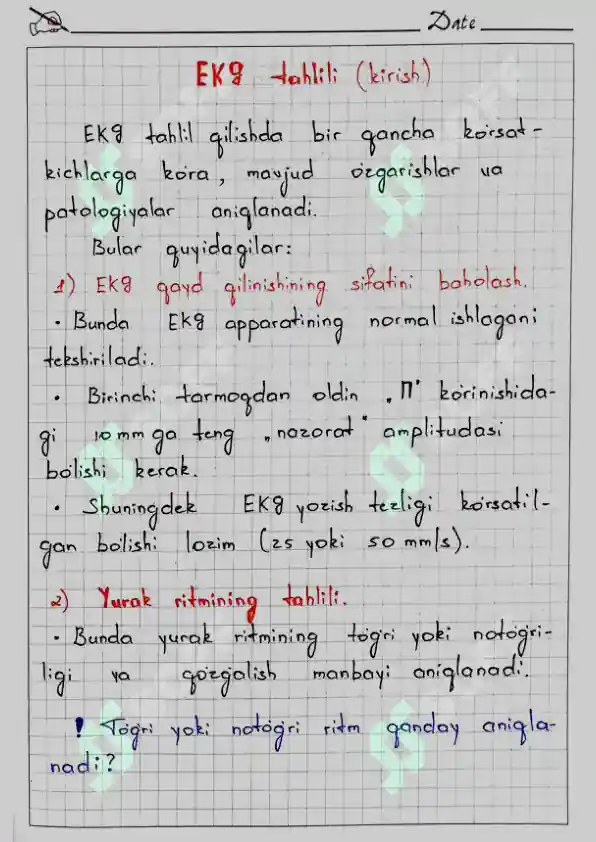 Date
EKg tahlili (kirish)
EKg tahlil qilishda bir qancha ko'rsat-
kichlarga ko'ra, mavjud o'zgarishlar va
patologiyalar aniqlanadi.
Bular quyidagilar:
1) EKg qayd qilinishining sifatini baholash.
• Bunda EKg apparatining normal ishlagani
tekshiriladi.
• Birinchi tarmoqdan oldin „П" ko'rinishida-
gi 10 mm ga teng „nazorat" amplitudasi
bo'lishi kerak.
• Shuningdek EKg yozish tezligi ko'rsatil-
gan bo'lishi lozim (25 yoki 50 mm/s).
2) Yurak ritmining tahlili.
• Bunda yurak ritmining to'g'ri yoki noto'g'ri-
ligi va qo'zg'alish manbayi aniqlanadi.
! To'g'ri yoki noto'g'ri ritm qanday aniqla-
nadi?